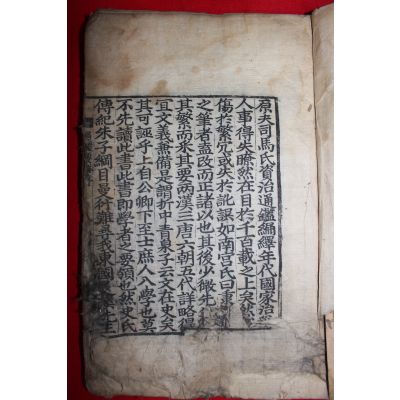 原夫司馬氏資治通鑑編繹年代國家治
人事得失瞭然在目於千百載之上矣然
傷於繁冗或失於訛誤如南宮氏曰重
之筆者盖改而正諸以也其後少微先
其繁而采其要兩漢三唐六朝五代詳略得
宜文義兼備是謂折中書泉子云文在史矣
其可誣乎上自公卿下至士庶人入學也莫
不先讀此書此書即學者之要領也然史氏
傳紀朱子綱目曼衍難 我東國